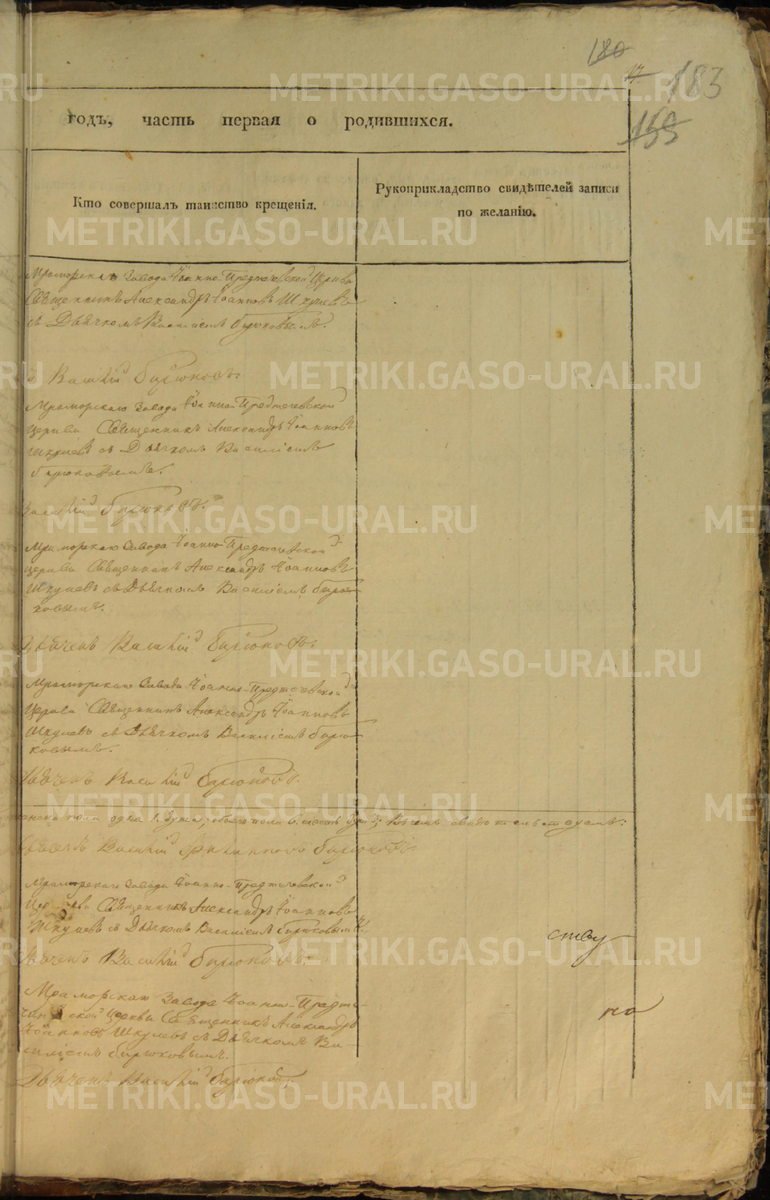 180
17
183
155
годъ, часть первая о родившихся.
Кто совершалъ таинство крещенія.
Рукоприкладство свидѣтелей записи
по желанію.
Мраморскаго Завода Іоанно-Предтечевской Церкви
Священникъ Александръ Іоанновъ
съ Дьячкомъ Василіемъ Бирюковымъ.
Василій Бирюковъ.
Мраморскаго Завода Іоанно-Предтечевской
Церкви Священникъ Александръ Іоанновъ
съ Дьячкомъ Василіемъ
Бирюковымъ.
Василій Бирюковъ.
Мраморскаго Завода Іоанно-Предтечевской
Церкви Священникъ Александръ Іоанновъ
съ Дьячкомъ Василіемъ Бирю-
ковымъ.
Дьячекъ Василій Бирюковъ.
Мраморскаго Завода Іоанно-Предтечевской
Церкви Священникъ Александръ Іоанновъ
съ Дьячкомъ Василіемъ Бирю-
ковымъ.
Дьячекъ Василій Бирюковъ.
пола одна 1. душа, обоего пола
свидѣтельствуемъ:
Дьячекъ Василій Бирюковъ
Мраморскаго Завода Іоанно-Предтечевской
Церкви Священникъ Александръ Іоанновъ
съ Дьячкомъ Василіемъ Бирюковымъ.
ству
Дьячекъ Василій Бирюковъ.
Мраморскаго Завода Іоанно-Предте-
чевской Церкви Священникъ Александръ
Іоанновъ съ Дьячкомъ Ва-
силіемъ Бирюковымъ.
по
Дьячекъ Василій Бирюковъ.
METRIKI.GASO-URAL.RU